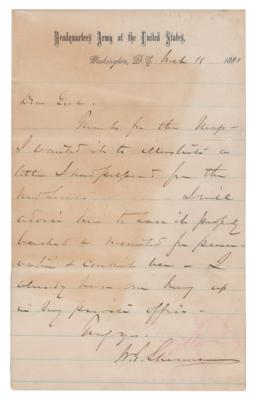 Headquarters Army of the United States,
Washington, D.C. March 11 1881
Dear Genl.
Thanks for the Map—
I wanted it to illustrate a
letter I had prepared for the
new I will
advise him to have it properly
backed & mounted for preser-
vation & convenient use — I
already have one hung up
in my private office —
Truly yrs.
W. T. Sherman